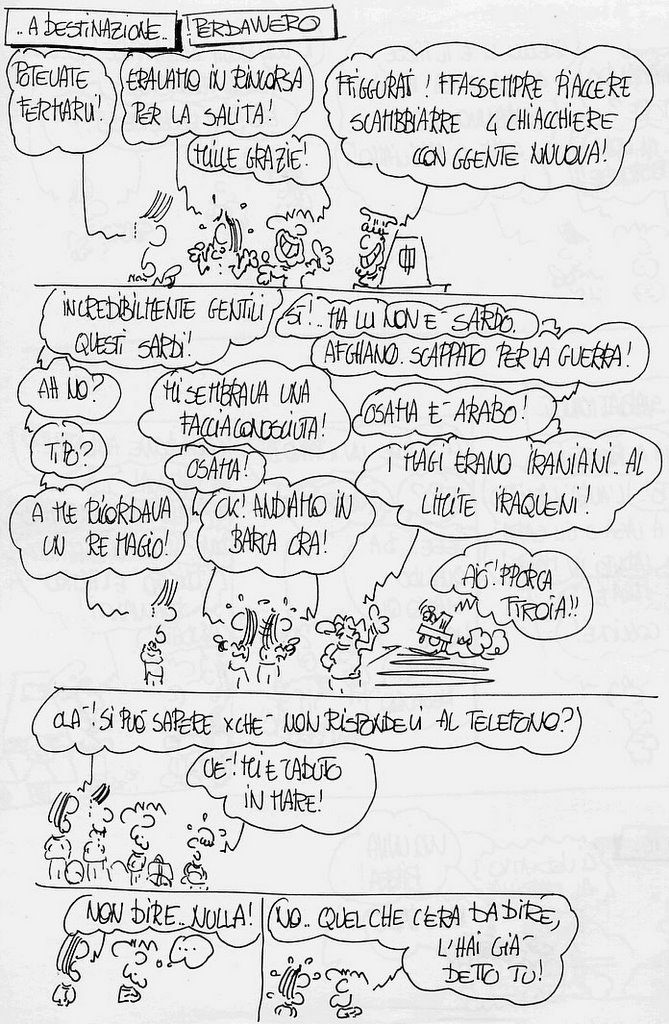 ..A DESTINAZIONE..
!PERDAVVERO
POTEVATE
FERMARVI!
ERAVAMO IN RINCORSA
PER LA SALITA!
MILLE GRAZIE!
FFIGGURATI! FFASSEMPRE PIACCERE
SCAMBBIARRE 4 CHIACCHIERE
CON GGENTE NNUOVA!
INCREDIBILMENTE GENTILI
QUESTI SARDI!
SI'!..MA LUI NON E' SARDO.
AFGHANO. SCAPPATO PER LA GUERRA!
AH NO?
MI SEMBRAVA UNA
FACCIA CONOSCIUTA!
OSAMA E' ARABO!
TIPO?
OSAMA!
I MAGI ERANO IRANIANI.. AL
LIMITE IRAQUENI!
A ME RICORDAVA
UN RE MAGIO!
OK! ANDIAMO IN
BARCA ORA!
AIO'! PPORCA
TTROIA!!
OLA'! SI PUO' SAPERE XCHE' NON RISPONDEVI AL TELEFONO?
UE'! MI E' CADUTO
IN MARE!
NON DIRE.. NULLA!
...
NO.. QUEL CHE C'ERA DA DIRE,
L'HAI GIA'
DETTO TU!